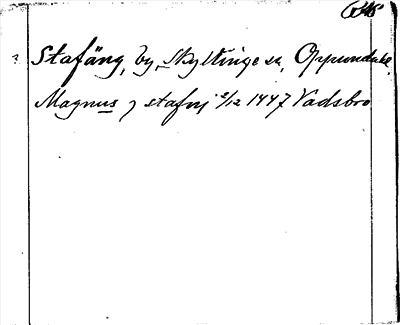 ? Stafäng, by, Skyttinge sn, Oppunda hd.
Magnus j stafnj 2/12 1447 Vadsbro